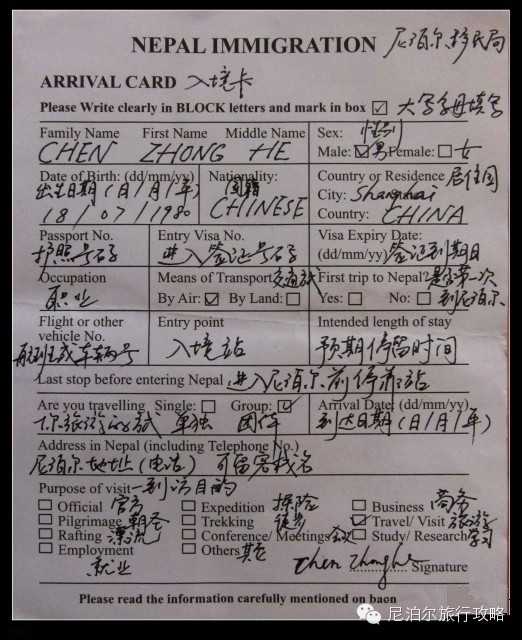 NEPAL IMMIGRATION 尼泊尔移民局
ARRIVAL CARD 入境卡
Please Write clearly in BLOCK letters and mark in box ☑ 大写字母填写
Family Name First Name Middle Name Sex: 性别
CHEN ZHONG HE Male: ☒ 男 Female: ☐ 女
Date of Birth: (dd/mm/yy) Nationality: Country or Residence 居住国
出生日期(日/月/年) 国籍 City: Shanghai
18/07/1980 CHINESE Country: CHINA
Passport No. Entry Visa No. Visa Expiry Date:
护照号码 进入签证号码 (dd/mm/yy) 签证到期日
Occupation Means of Transport 交通 First trip to Nepal? 是否第一次
职业 By Air: ☑ By Land: ☐ Yes: ☐ No: ☐ 到尼泊尔
Flight or other Entry point Intended length of stay
vehicle No. 入境站 预期停留时间
航班或车辆号
Last stop before entering Nepal 进入尼泊尔前停靠站
Are you travelling Single: ☐ Group: ☑ Arrival Date: (dd/mm/yy)
单独 团体 到达日期(日/月/年)
Address in Nepal (including Telephone No.)
尼泊尔地址(电话) 可留客栈名
Purpose of visit 到访目的
☐ Official 官方 ☐ Expedition 探险 ☐ Business 商务
☐ Pilgrimage 朝圣 ☐ Trekking 徒步 ☑ Travel/ Visit 旅游
☐ Rafting 漂流 ☐ Conference/ Meetings 会议 ☐ Study/ Research 学习
☐ Employment ☐ Others 其他
就业 Chen Zhonghe Signature
Please read the information carefully mentioned on baon
尼泊尔旅行攻略